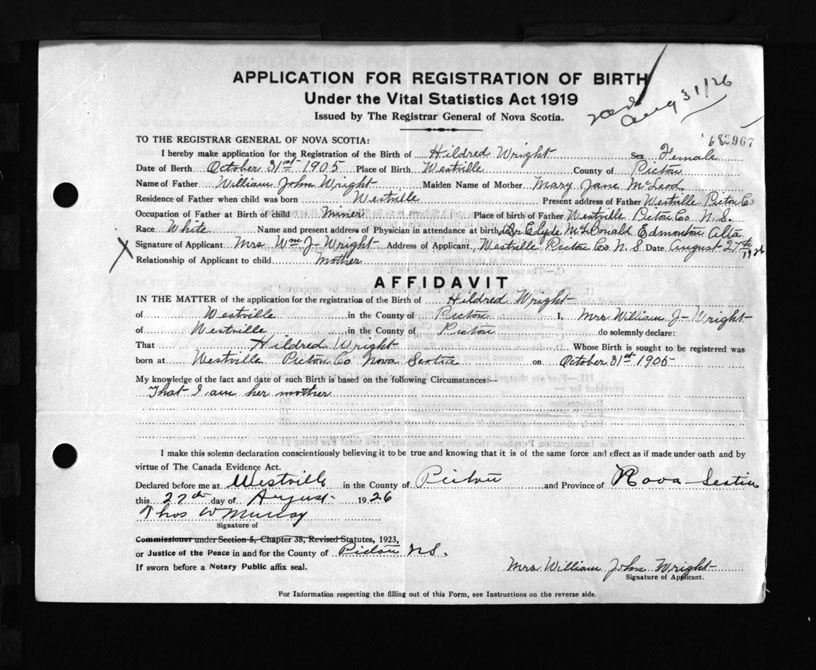 APPLICATION FOR REGISTRATION OF BIRTH
Under the Vital Statistics Act 1919
Issued by The Registrar General of Nova Scotia.
Aug 31/26
TO THE REGISTRAR GENERAL OF NOVA SCOTIA:
I hereby make application for the Registration of the Birth of Hildred Wright Sex Female
Date of Birth October 31st 1905 Place of Birth Westville County of Pictou
Name of Father William John Wright Maiden Name of Mother Mary Jane McLeod
Residence of Father when child was born Westville Present address of Father Westville Pictou Co
Occupation of Father at Birth of child miner Place of birth of Father Westville Pictou Co. N. S.
Race White Name and present address of Physician in attendance at birth Dr Clyde McDonald Edmonton Alta
X Signature of Applicant Mrs. Wm J- Wright Address of Applicant Westville Pictou Co. N. S Date August 27th 1926
Relationship of Applicant to child mother
AFFIDAVIT
IN THE MATTER of the application for the registration of the Birth of Hildred Wright
of Westville in the County of Pictou I, Mrs. William J- Wright
of Westville in the County of Pictou do solemnly declare:
That Hildred Wright Whose Birth is sought to be registered was
born at Westville Pictou Co Nova Scotia on October 31st 1905
My knowledge of the fact and date of such Birth is based on the following Circumstances:—
That I am her mother
I make this solemn declaration conscientiously believing it to be true and knowing that it is of the same force and effect as if made under oath and by
virtue of The Canada Evidence Act.
Declared before me at Westville in the County of Pictou and Province of Nova-Scotia
this 27th day of August 1926
Thos W Murray
Signature of
Commissioner under Section 5, Chapter 38, Revised Statutes, 1923,
or Justice of the Peace in and for the County of Pictou N S.
If sworn before a Notary Public affix seal.
Mrs. William John Wright
Signature of Applicant.
For Information respecting the filling out of this Form, see Instructions on the reverse side.